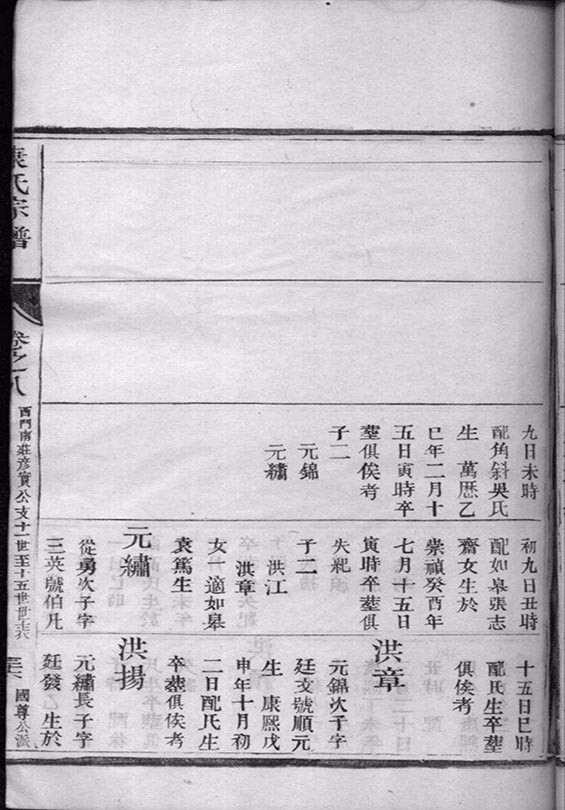 九日未時
配角斜吳氏
生 萬厯乙
巳年二月十
五日寅時卒
塟俱俟考
子二
元錦
元繡
初九日丑時
配如皋張志
齋女生於
崇禎癸酉年
七月十五日
寅時卒塟俱
失紀
子二
洪江
洪章
女一適如皋
袁篤生
元繡
從勇次子字
三英號伯凡
十五日巳時
配氏生卒塟
俱俟考
洪章
元錦次子字
廷文號順元
生 康熙戊
申年十月初
二日配氏生
卒塟俱俟考
洪揚
元繡長子字
廷發 生於
袁氏宗譜
卷之八
西門南莊彥實公支十一世至十五世世系
國尊公派